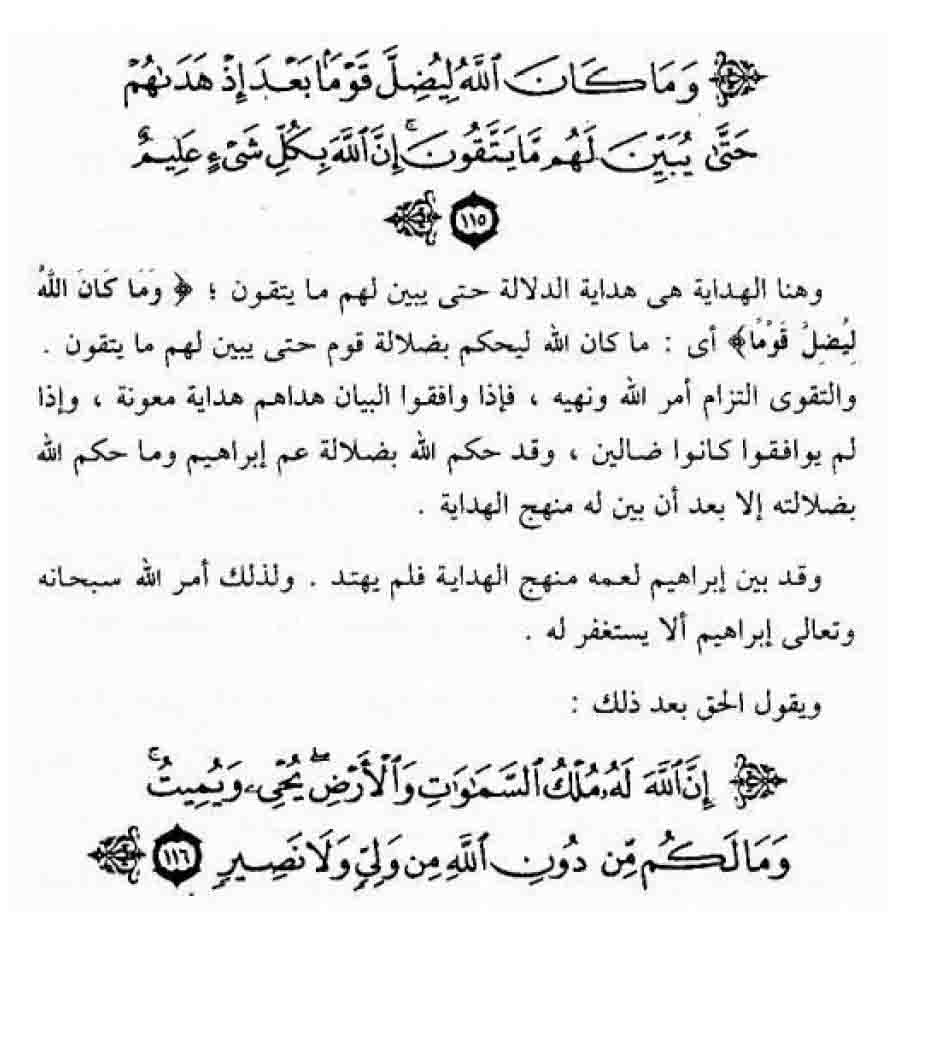 ﴿ وَمَا كَانَ ٱللَّهُ لِيُضِلَّ قَوْمًۢا بَعْدَ إِذْ هَدَىٰهُمْ
حَتَّىٰ يُبَيِّنَ لَهُم مَّا يَتَّقُونَ ۚ إِنَّ ٱللَّهَ بِكُلِّ شَىْءٍ عَلِيمٌ
١١٥ ﴾
وهنا الهداية هى هداية الدلالة حتى يبين لهم ما يتقون ؛ ﴿ وَمَا كَانَ اللَّهُ
لِيُضِلَّ قَوْمًا﴾ أى : ما كان الله ليحكم بضلالة قوم حتى يبين لهم ما يتقون .
والتقوى التزام أمر الله ونهيه ، فإذا وافقوا البيان هداهم هداية معونة ، وإذا
لم يوافقوا كانوا ضالين ، وقد حكم الله بضلالة عم إبراهيم وما حكم الله
بضلالته إلا بعد أن بين له منهج الهداية .
وقد بين إبراهيم لعمه منهج الهداية فلم يهتد . ولذلك أمر الله سبحانه
وتعالى إبراهيم ألا يستغفر له .
ويقول الحق بعد ذلك :
﴿ إِنَّ ٱللَّهَ لَهُۥ مُلْكُ ٱلسَّمَٰوَٰتِ وَٱلْأَرْضِ ۖ يُحْىِۦ وَيُمِيتُ ۚ
وَمَا لَكُم مِّن دُونِ ٱللَّهِ مِن وَلِىٍّ وَلَا نَصِيرٍ ١١٦ ﴾